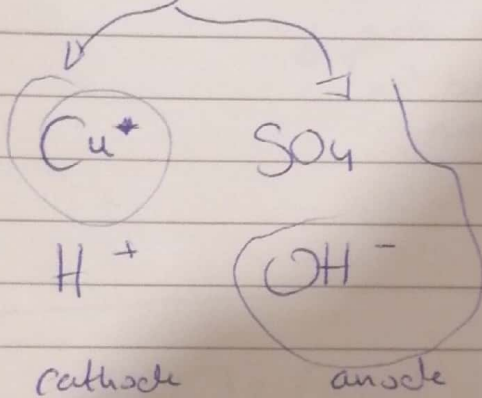 Cu⁺ SO4
H⁺ OH⁻
cathode anode